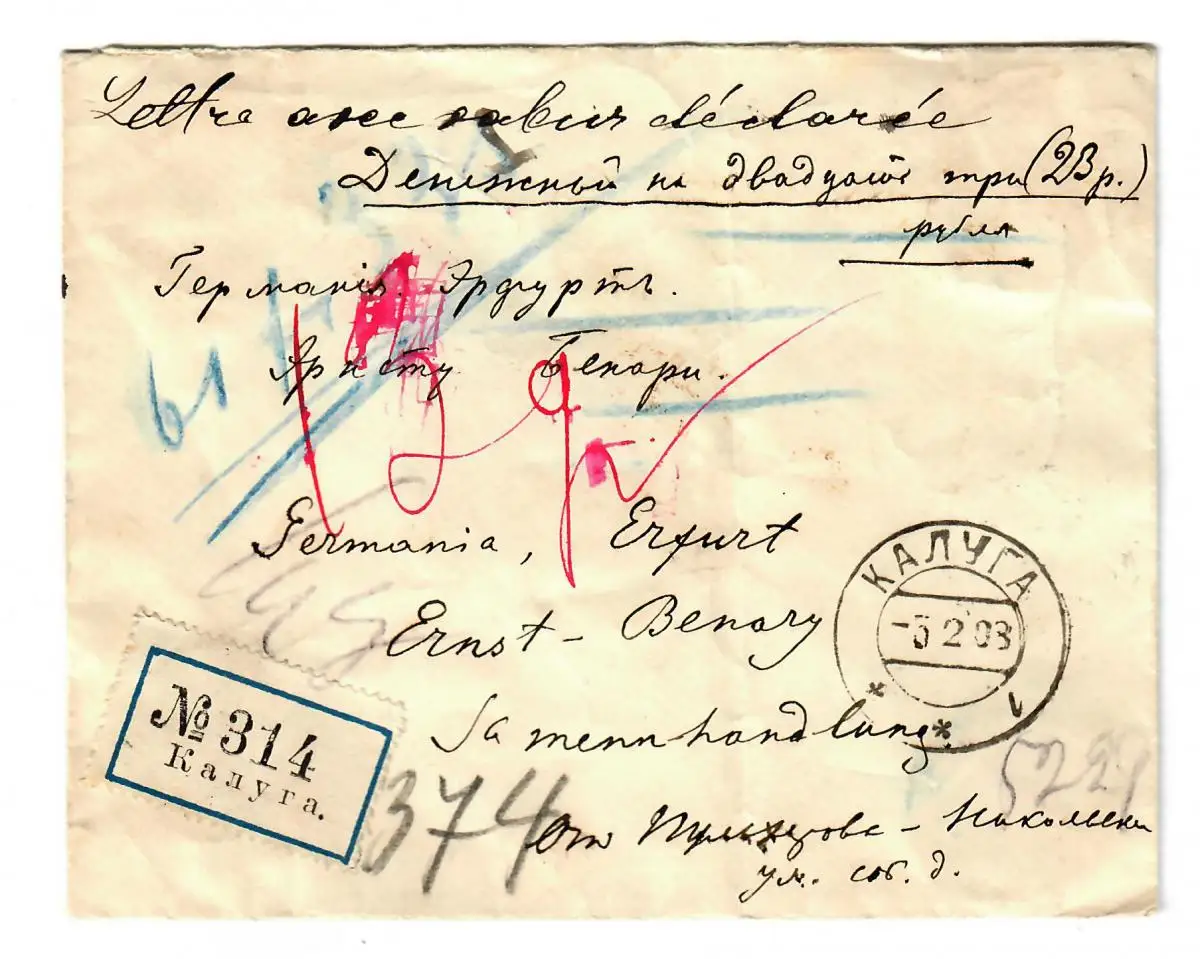 Lettre avec valeur déclarée
Денежный на двадцать три (23 р.)
рубля
Германія. Эрфуртъ.
Эрнсту Бенари.
61
Germania, Erfurt
Ernst - Benary
Samennhandlung
КАЛУГА
2 03
1
№ 314
Калуга.
374
От - Никольски
ул. соб. д.